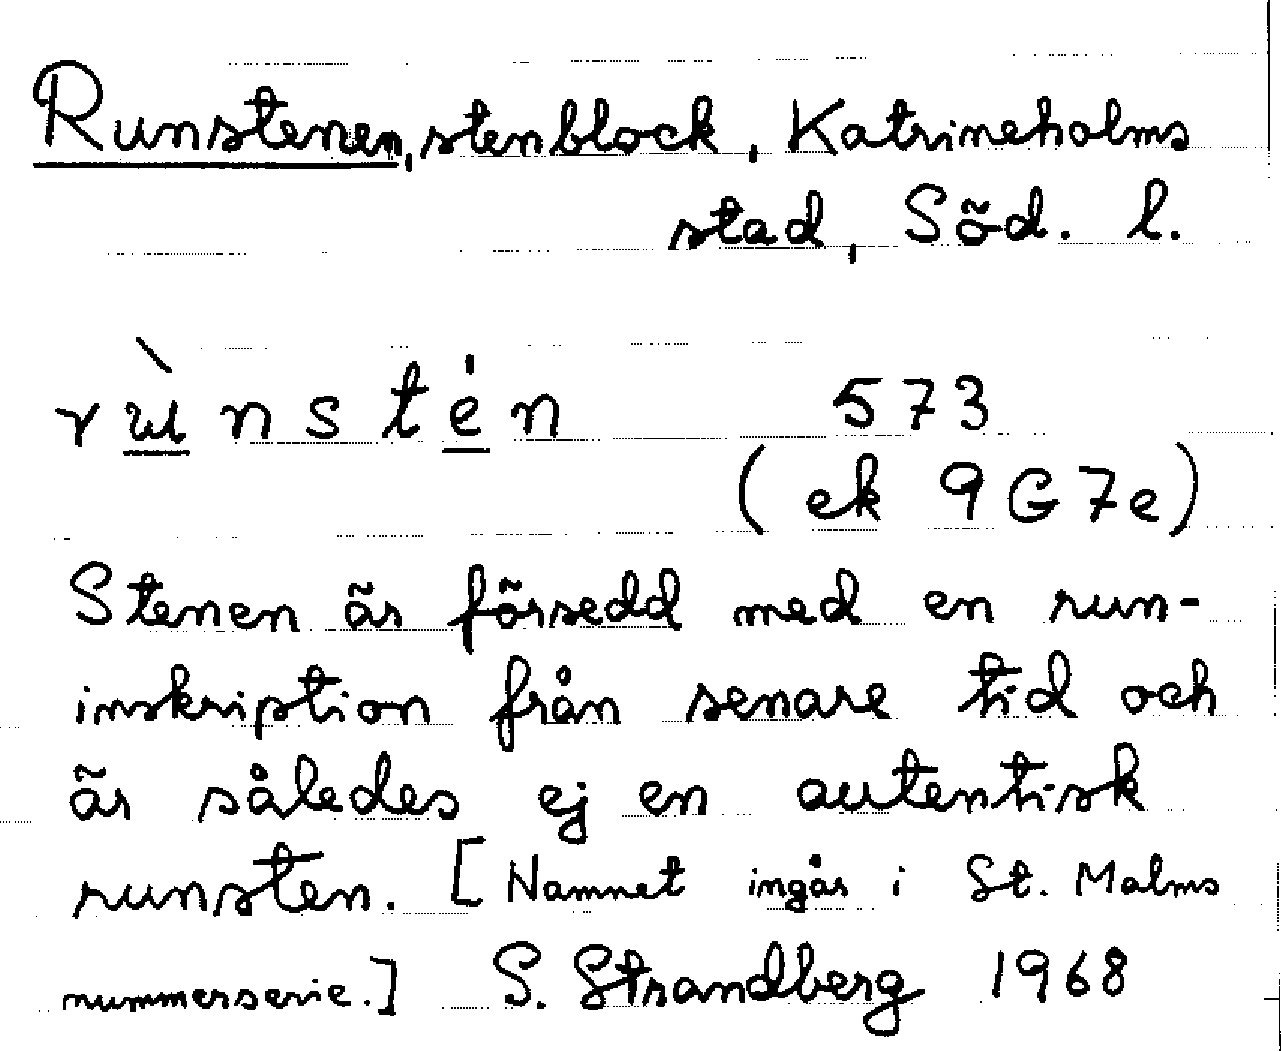 Runstenen, stenblock, Katrineholms
stad, Söd. l.
rɯ̀nsten 573
(ek 9G7e)
Stenen är försedd med en run-
inskription från senare tid och
är således ej en autentisk
runsten. [Namnet ingår i St. Malms
nummerserie.] S. Strandberg 1968